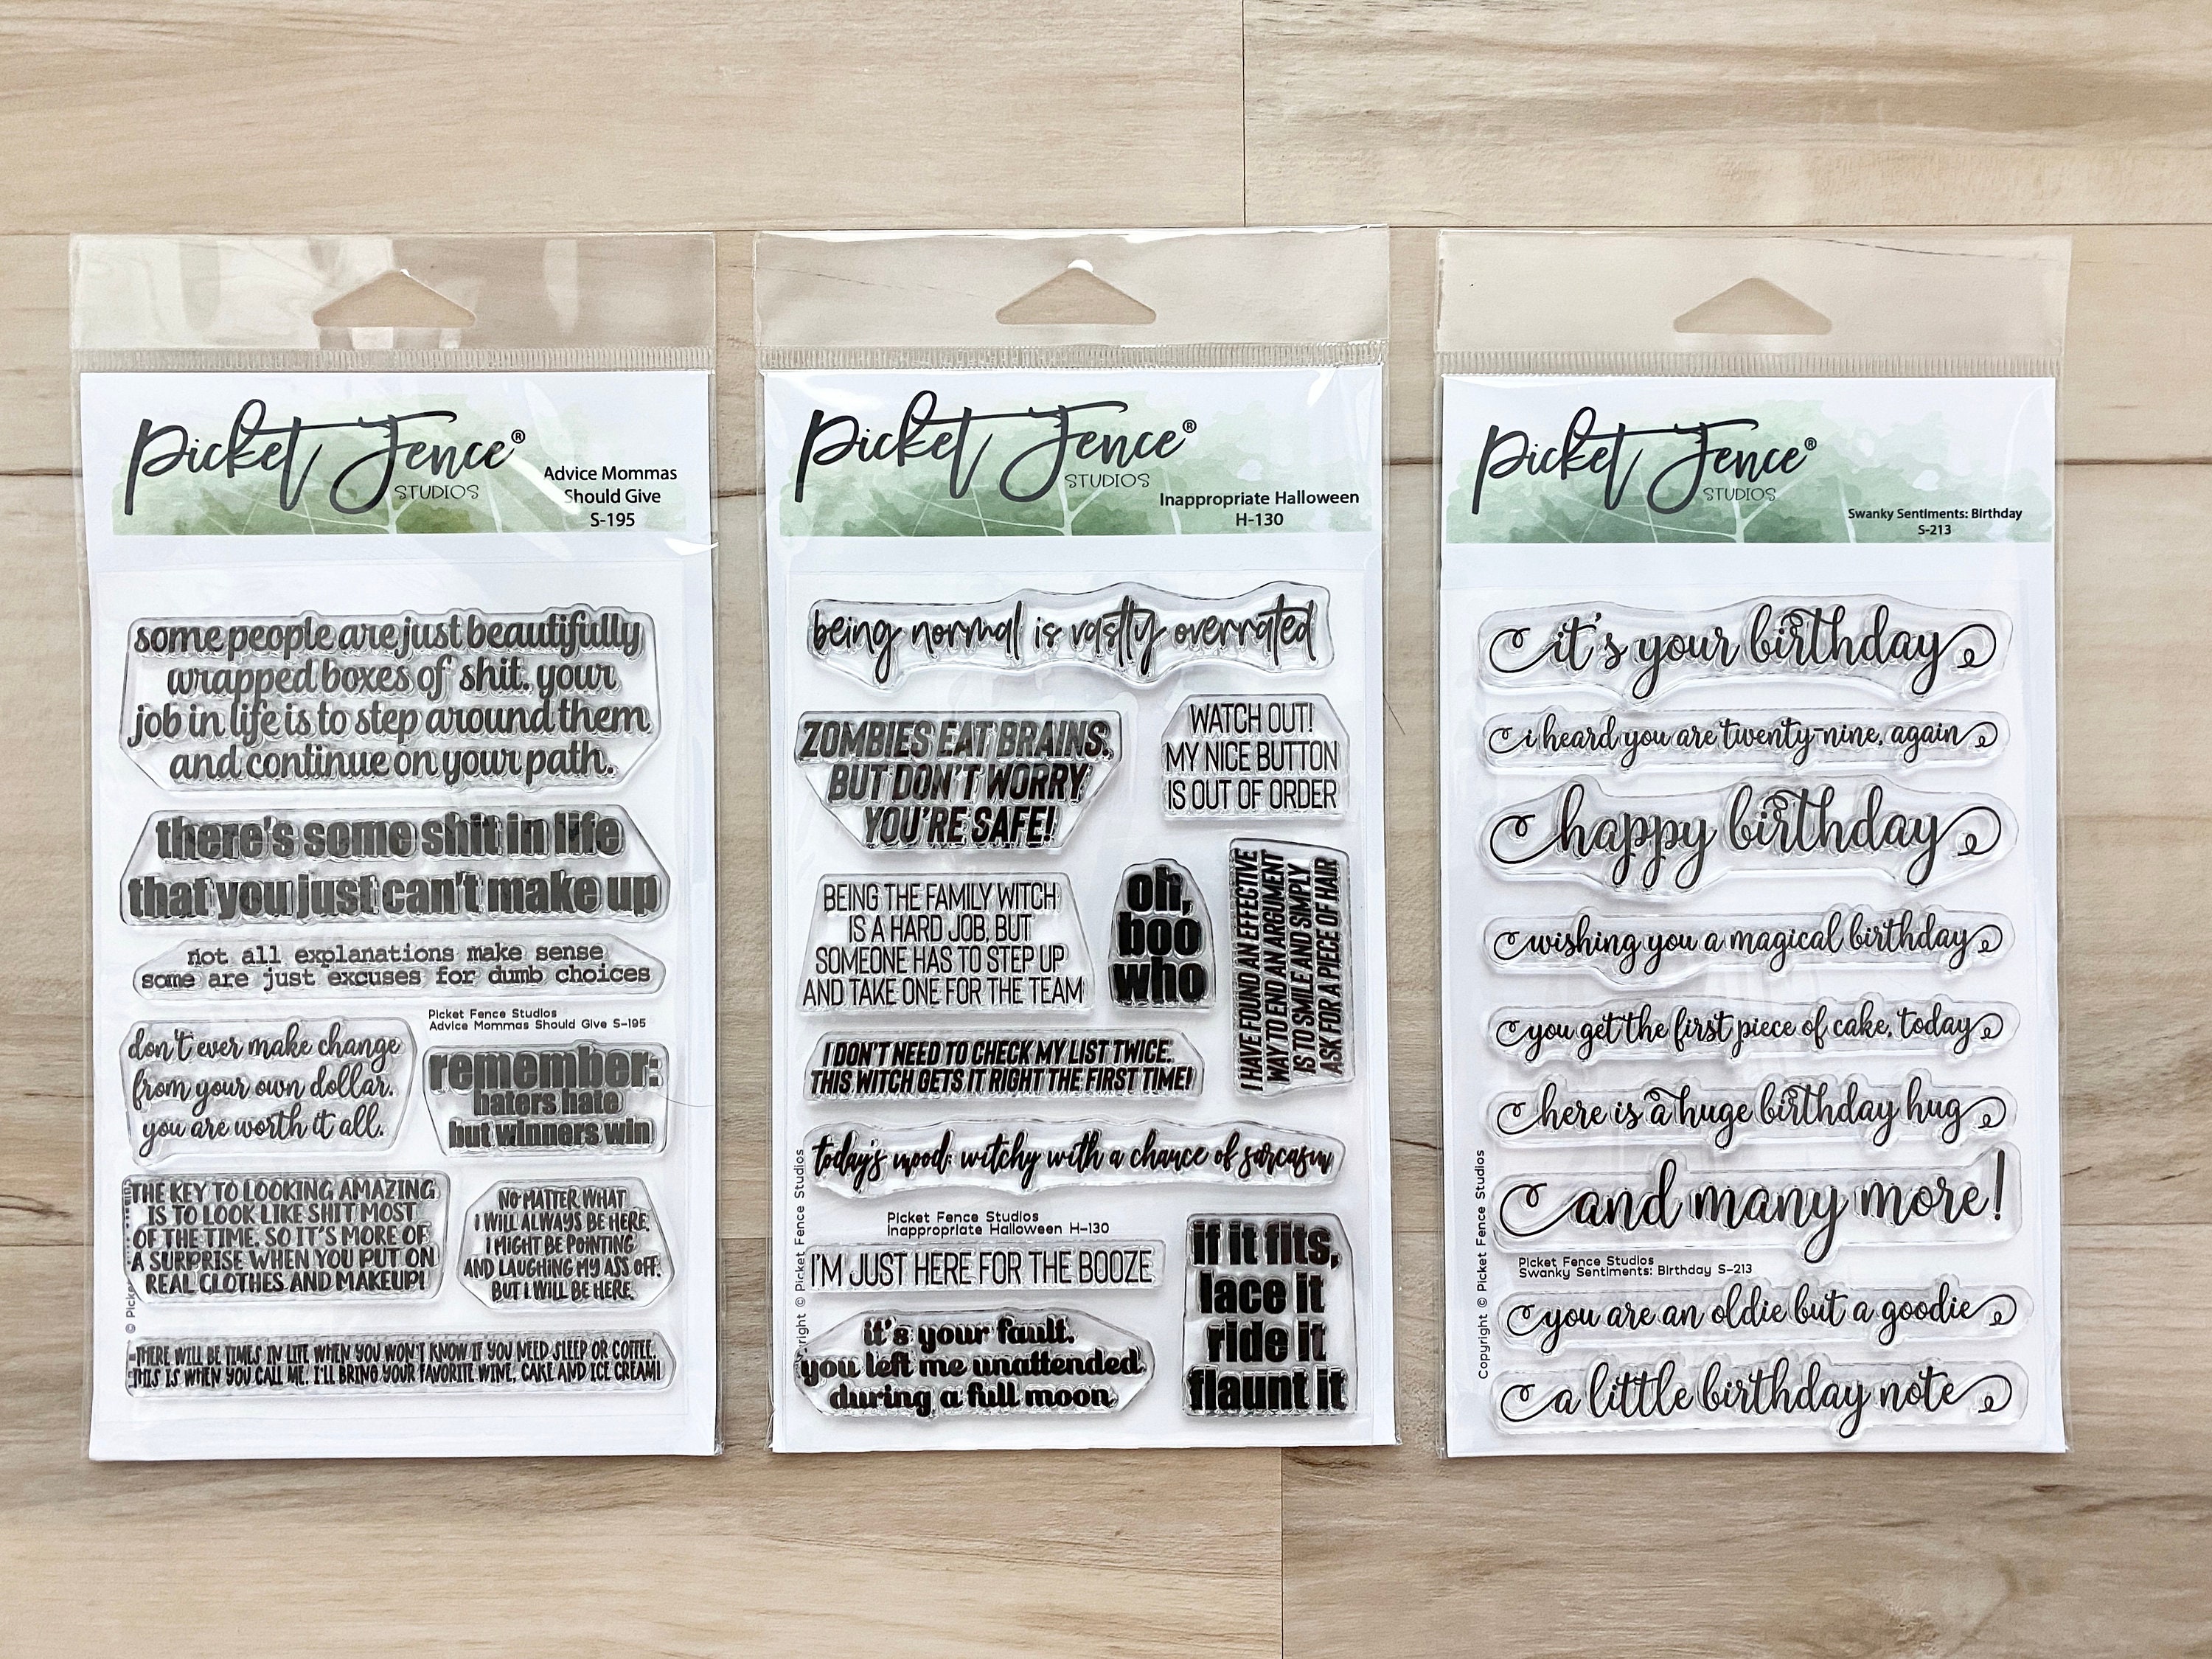 Picket Fence®
STUDIOS
Advice Mommas
Should Give
S-195
some people are just beautifully
wrapped boxes of shit. your
job in life is to step around them
and continue on your path.
there's some shit in life
that you just can't make up
not all explanations make sense
some are just excuses for dumb choices
Picket Fence Studios
Advice Mommas Should Give S-195
don't ever make change
from your own dollar.
you are worth it all.
remember:
haters hate
but winners win
THE KEY TO LOOKING AMAZING
IS TO LOOK LIKE SHIT MOST
OF THE TIME. SO IT'S MORE OF
A SURPRISE WHEN YOU PUT ON
REAL CLOTHES AND MAKEUP!
NO MATTER WHAT
I WILL ALWAYS BE HERE.
I MIGHT BE POINTING
AND LAUGHING MY ASS OFF.
BUT I WILL BE HERE.
© Picke
THERE WILL BE TIMES IN LIFE WHEN YOU WON'T KNOW IF YOU NEED SLEEP OR COFFEE.
THIS IS WHEN YOU CALL ME. I'LL BRING YOUR FAVORITE WINE, CAKE AND ICE CREAM!
Picket Fence®
STUDIOS
Inappropriate Halloween
H-130
being normal is vastly overrated
ZOMBIES EAT BRAINS,
BUT DON'T WORRY
YOU'RE SAFE!
WATCH OUT!
MY NICE BUTTON
IS OUT OF ORDER
BEING THE FAMILY WITCH
IS A HARD JOB, BUT
SOMEONE HAS TO STEP UP
AND TAKE ONE FOR THE TEAM
oh,
boo
who
I HAVE FOUND AN EFFECTIVE
WAY TO END AN ARGUMENT
IS TO SMILE AND SIMPLY
ASK FOR A PIECE OF HAIR
I DON'T NEED TO CHECK MY LIST TWICE.
THIS WITCH GETS IT RIGHT THE FIRST TIME!
today's mood: witchy with a chance of sarcasm
Picket Fence Studios
Inappropriate Halloween H-130
I'M JUST HERE FOR THE BOOZE
if it fits,
lace it
ride it
flaunt it
it's your fault.
you left me unattended
during a full moon
right © Picket Fence Studios
Picket Fence®
STUDIOS
Swanky Sentiments: Birthday
S-213
it's your birthday
i heard you are twenty-nine, again
happy birthday
wishing you a magical birthday
you get the first piece of cake, today
here is a huge birthday hug
and many more!
Picket Fence Studios
Swanky Sentiments: Birthday S-213
you are an oldie but a goodie
a little birthday note
Copyright © Picket Fence Studios